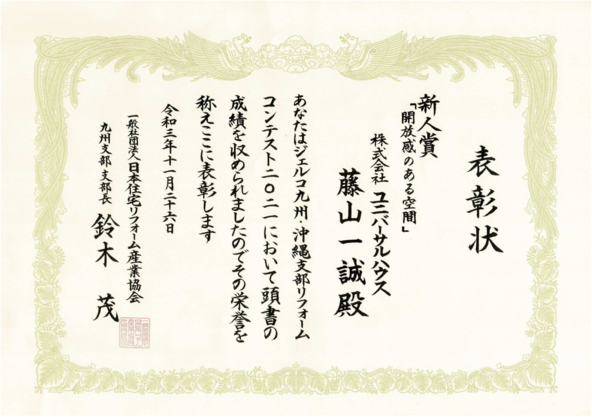 表彰状
新人賞
「開放感のある空間」
株式会社 ユニバーサルハウス
藤山一誠殿
あなたはジェルコ九州・沖縄支部リフォーム
コンテスト二〇二一において頭書の
成績を収められましたのでその栄誉を
称えここに表彰します
令和三年十一月二十六日
一般社団法人日本住宅リフォーム産業協会
九州支部 支部長 鈴木 茂